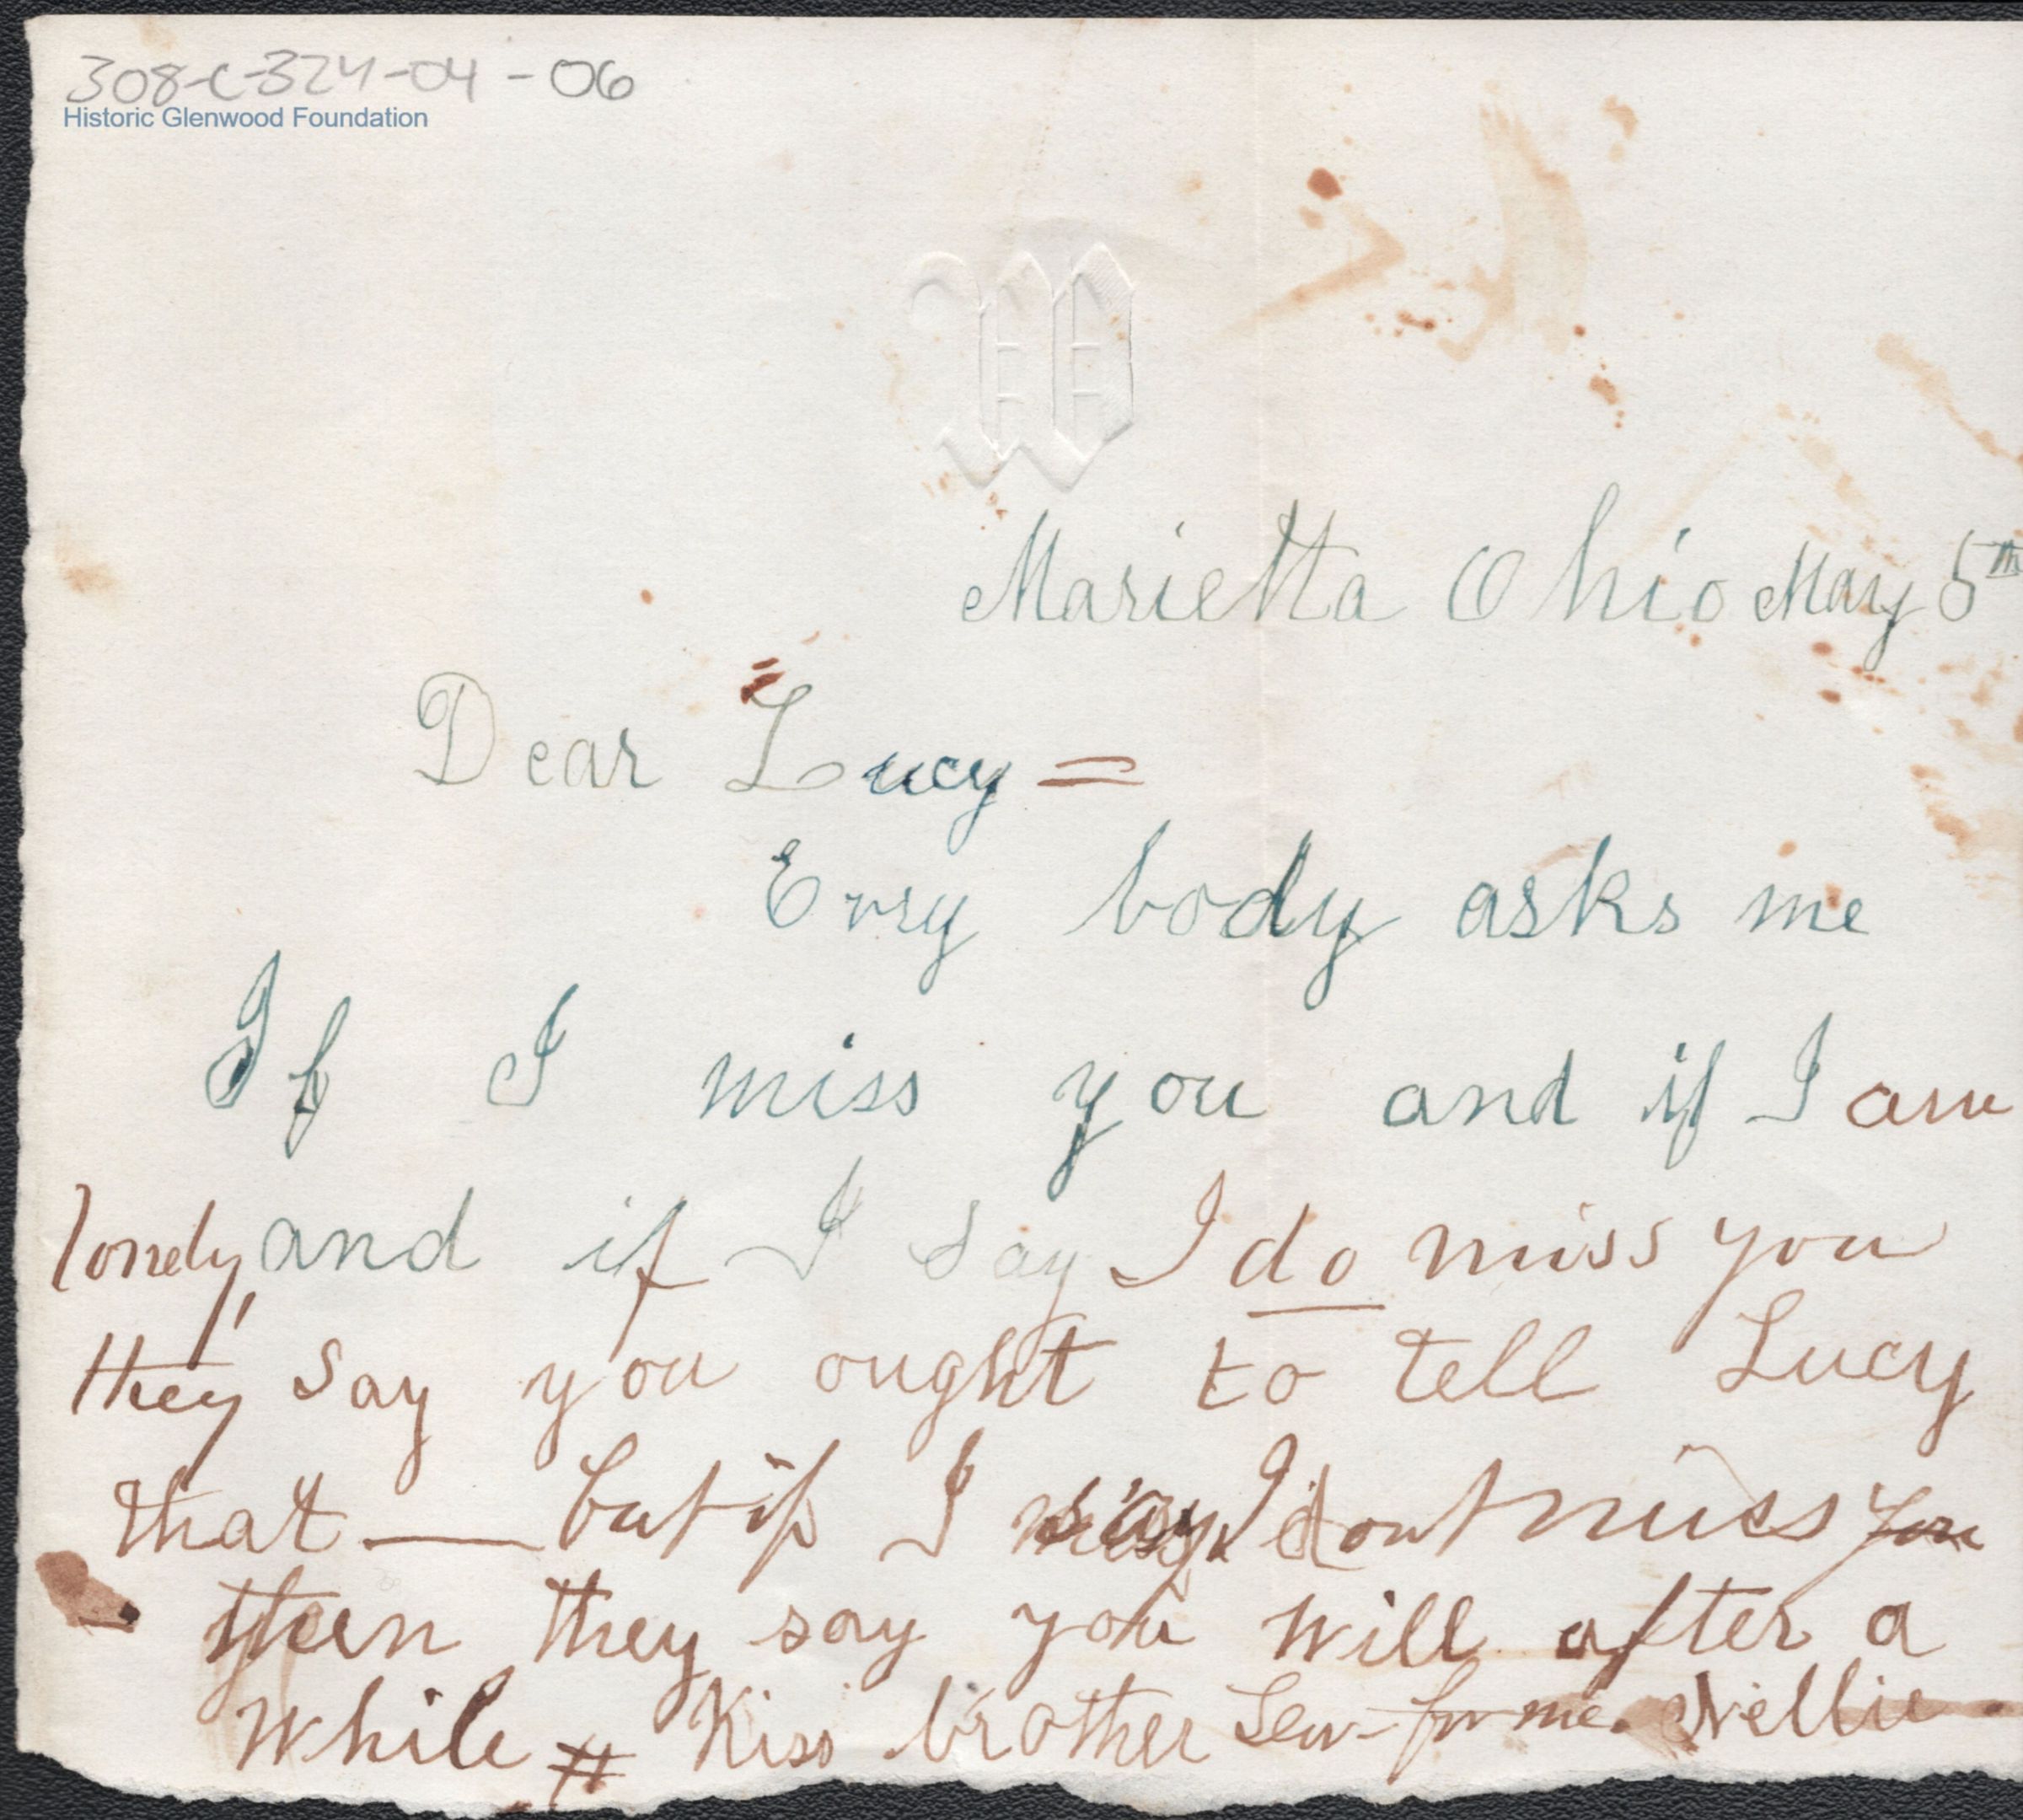 308-C-324-04-06
Historic Glenwood Foundation
W
Marietta Ohio May 5th
Dear Lucy =
Evry body asks me
If I miss you and if I am
lonely, and if I say I do miss you
they say you ought to tell Lucy
that — but if I say I dont miss you
then they say you will after a
while # Kiss brother Lew for me. Nellie.